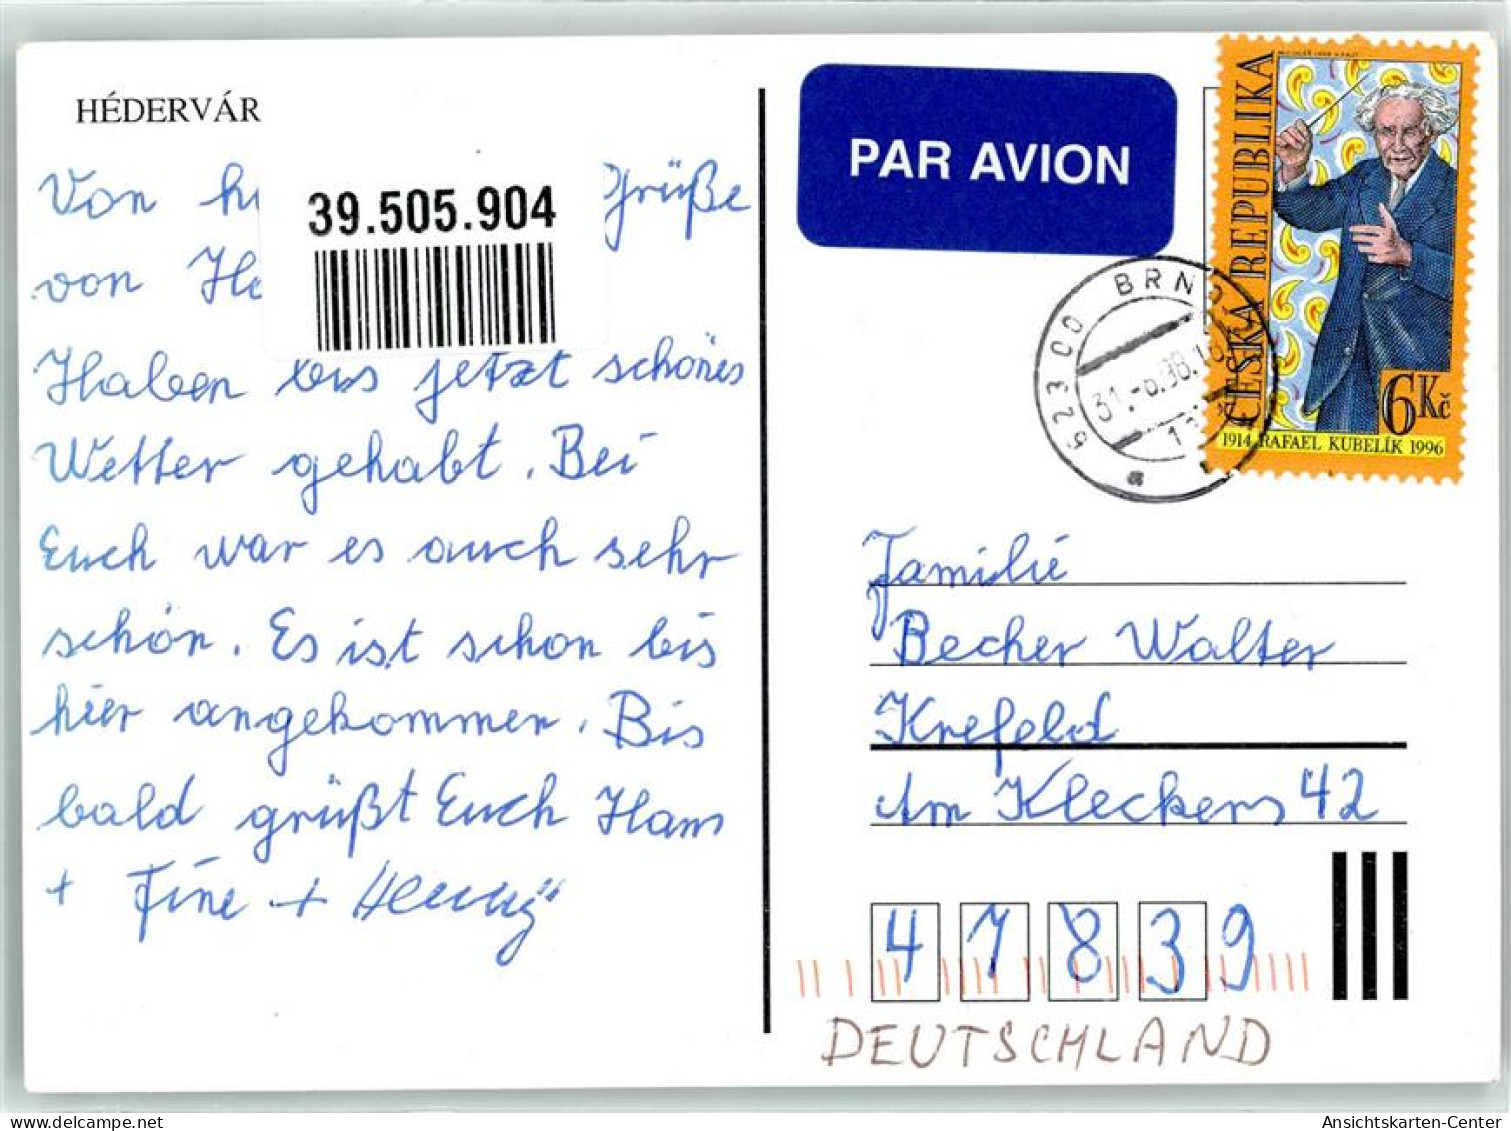 HÉDERVÁR
Von Grüße
von
39.505.904
Haben bis jetzt schönes
Wetter gehabt. Bei
Euch war es auch sehr
schön. Es ist schon bis
hier angekommen. Bis
bald grüßt Euch Hans
+ Fine +
PAR AVION
ČESKÁ REPUBLIKA
6Kč
1914 RAFAEL KUBELÍK 1996
623 00 BRNO
Familie
Becher Walter
Krefeld
Am Kleckers 42
47839
DEUTSCHLAND
hds-ak23
Ansichtskarten-Center